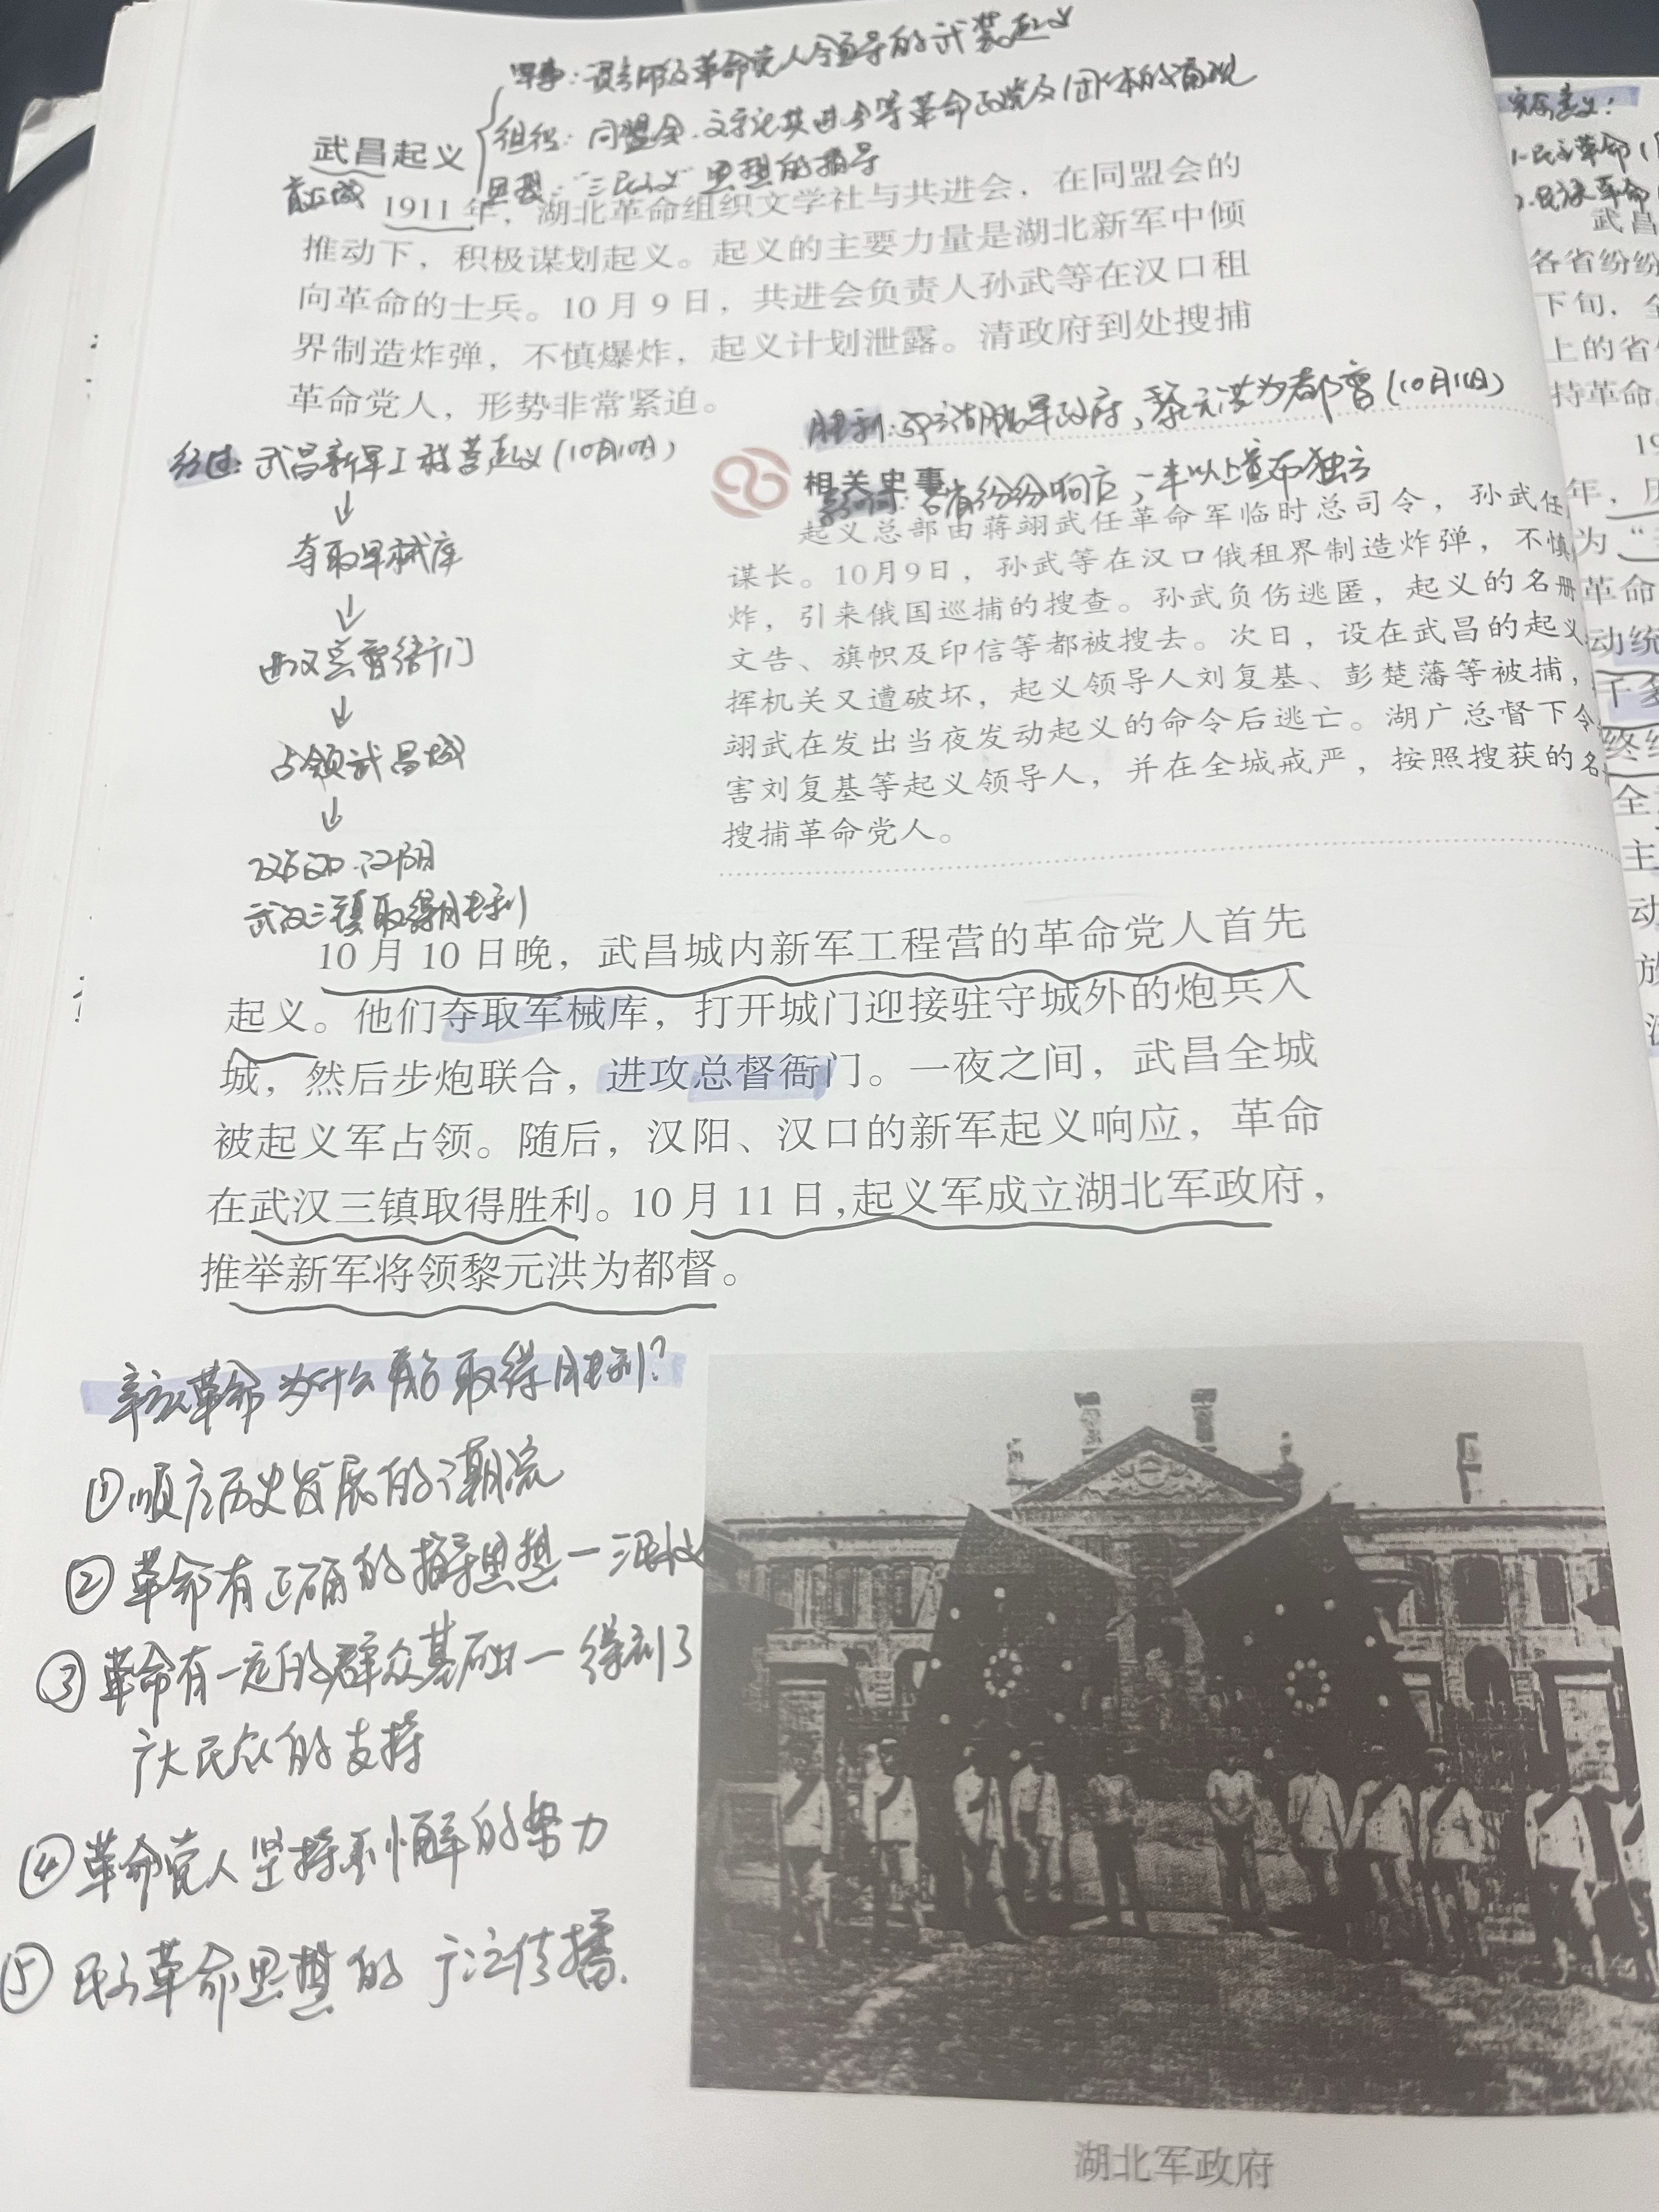 军事：革命党人领导的武装起义
组织：同盟会、文学社共进会等革命政党及团体的涌现
武昌起义
思想："三民主义"思想的指导
1911年，湖北革命组织文学社与共进会，在同盟会的
推动下，积极谋划起义。起义的主要力量是湖北新军中倾
向革命的士兵。10月9日，共进会负责人孙武等在汉口租
界制造炸弹，不慎爆炸，起义计划泄露。清政府到处搜捕
革命党人，形势非常紧迫。
胜利：成立湖北军政府，黎元洪为都督（10月11日）
经过：武昌新军工程营起义（10月10日）
↓
夺取军械库
↓
进攻总督衙门
↓
占领武昌城
↓
汉口、汉阳
武汉三镇取得胜利
相关史事
影响：各省纷纷响应，一半以上宣布独立
起义总部由蒋翊武任革命军临时总司令，孙武任
谋长。10月9日，孙武等在汉口俄租界制造炸弹，不慎
炸，引来俄国巡捕的搜查。孙武负伤逃匿，起义的名册
文告、旗帜及印信等都被搜去。次日，设在武昌的起义
挥机关又遭破坏，起义领导人刘复基、彭楚藩等被捕，
翊武在发出当夜发动起义的命令后逃亡。湖广总督下令
害刘复基等起义领导人，并在全城戒严，按照搜获的名
搜捕革命党人。
10月10日晚，武昌城内新军工程营的革命党人首先
起义。他们夺取军械库，打开城门迎接驻守城外的炮兵入
城，然后步炮联合，进攻总督衙门。一夜之间，武昌全城
被起义军占领。随后，汉阳、汉口的新军起义响应，革命
在武汉三镇取得胜利。10月11日，起义军成立湖北军政府，
推举新军将领黎元洪为都督。
辛亥革命为什么能取得胜利？
①顺应历史发展的潮流
②革命有正确的指导思想—三民主义
③革命有一定的群众基础—得到了
广大民众的支持
④革命党人坚持不懈的努力
⑤民主革命思想的广泛传播.
湖北军政府
1.民主革命
2.民族革命
武昌
各省纷纷
下旬，
上的省
持革命。
19
年，
为"
革命
动统
终结
全
主
动